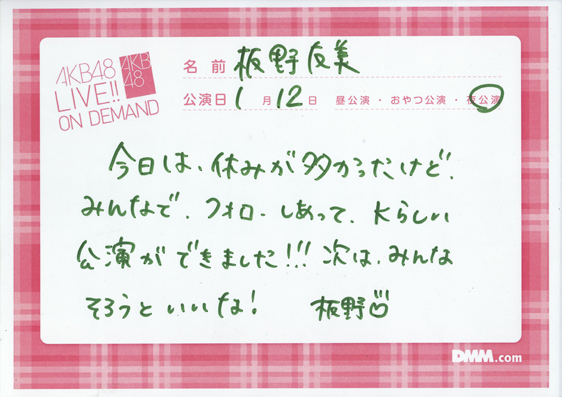 AKB48
LIVE!!
ON DEMAND
AKB
48
名前 板野友美
公演日 1月12日 昼公演・おやつ公演・夜公演
今日は、休みが多かったけど、
みんなで、フォローしあって、Kらしい
公演ができました!!! 次は、みんな
そろうといいな!
板野
DMM.com